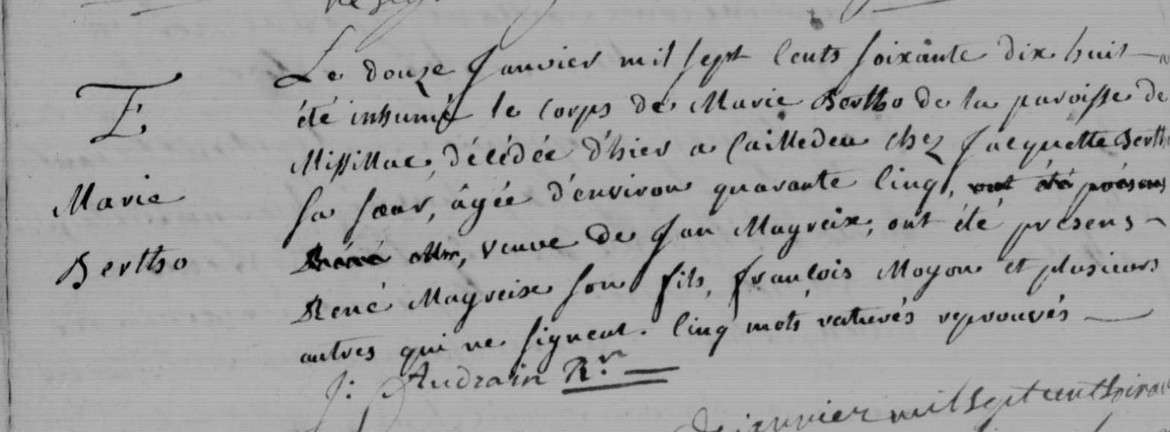 Le douze Janvier mil sept Cents soixante dix huit a
été inhumé le Corps de Marie Bertho de la paroisse de
Missillac, décédée d'hier a Cailledeu chez Jacquette Berth
sa sœur, âgée d'environ quarante Cinq, ont été présens
René, veuve de Jan Magreix, ont été présens
René Magreix son fils, françois Moyon et plusieurs
autres qui ne signent. Cinq mots raturés reprouvés
J: Audrain Rr
Marie
Bertho
Janvier mil Sept cent Soixa